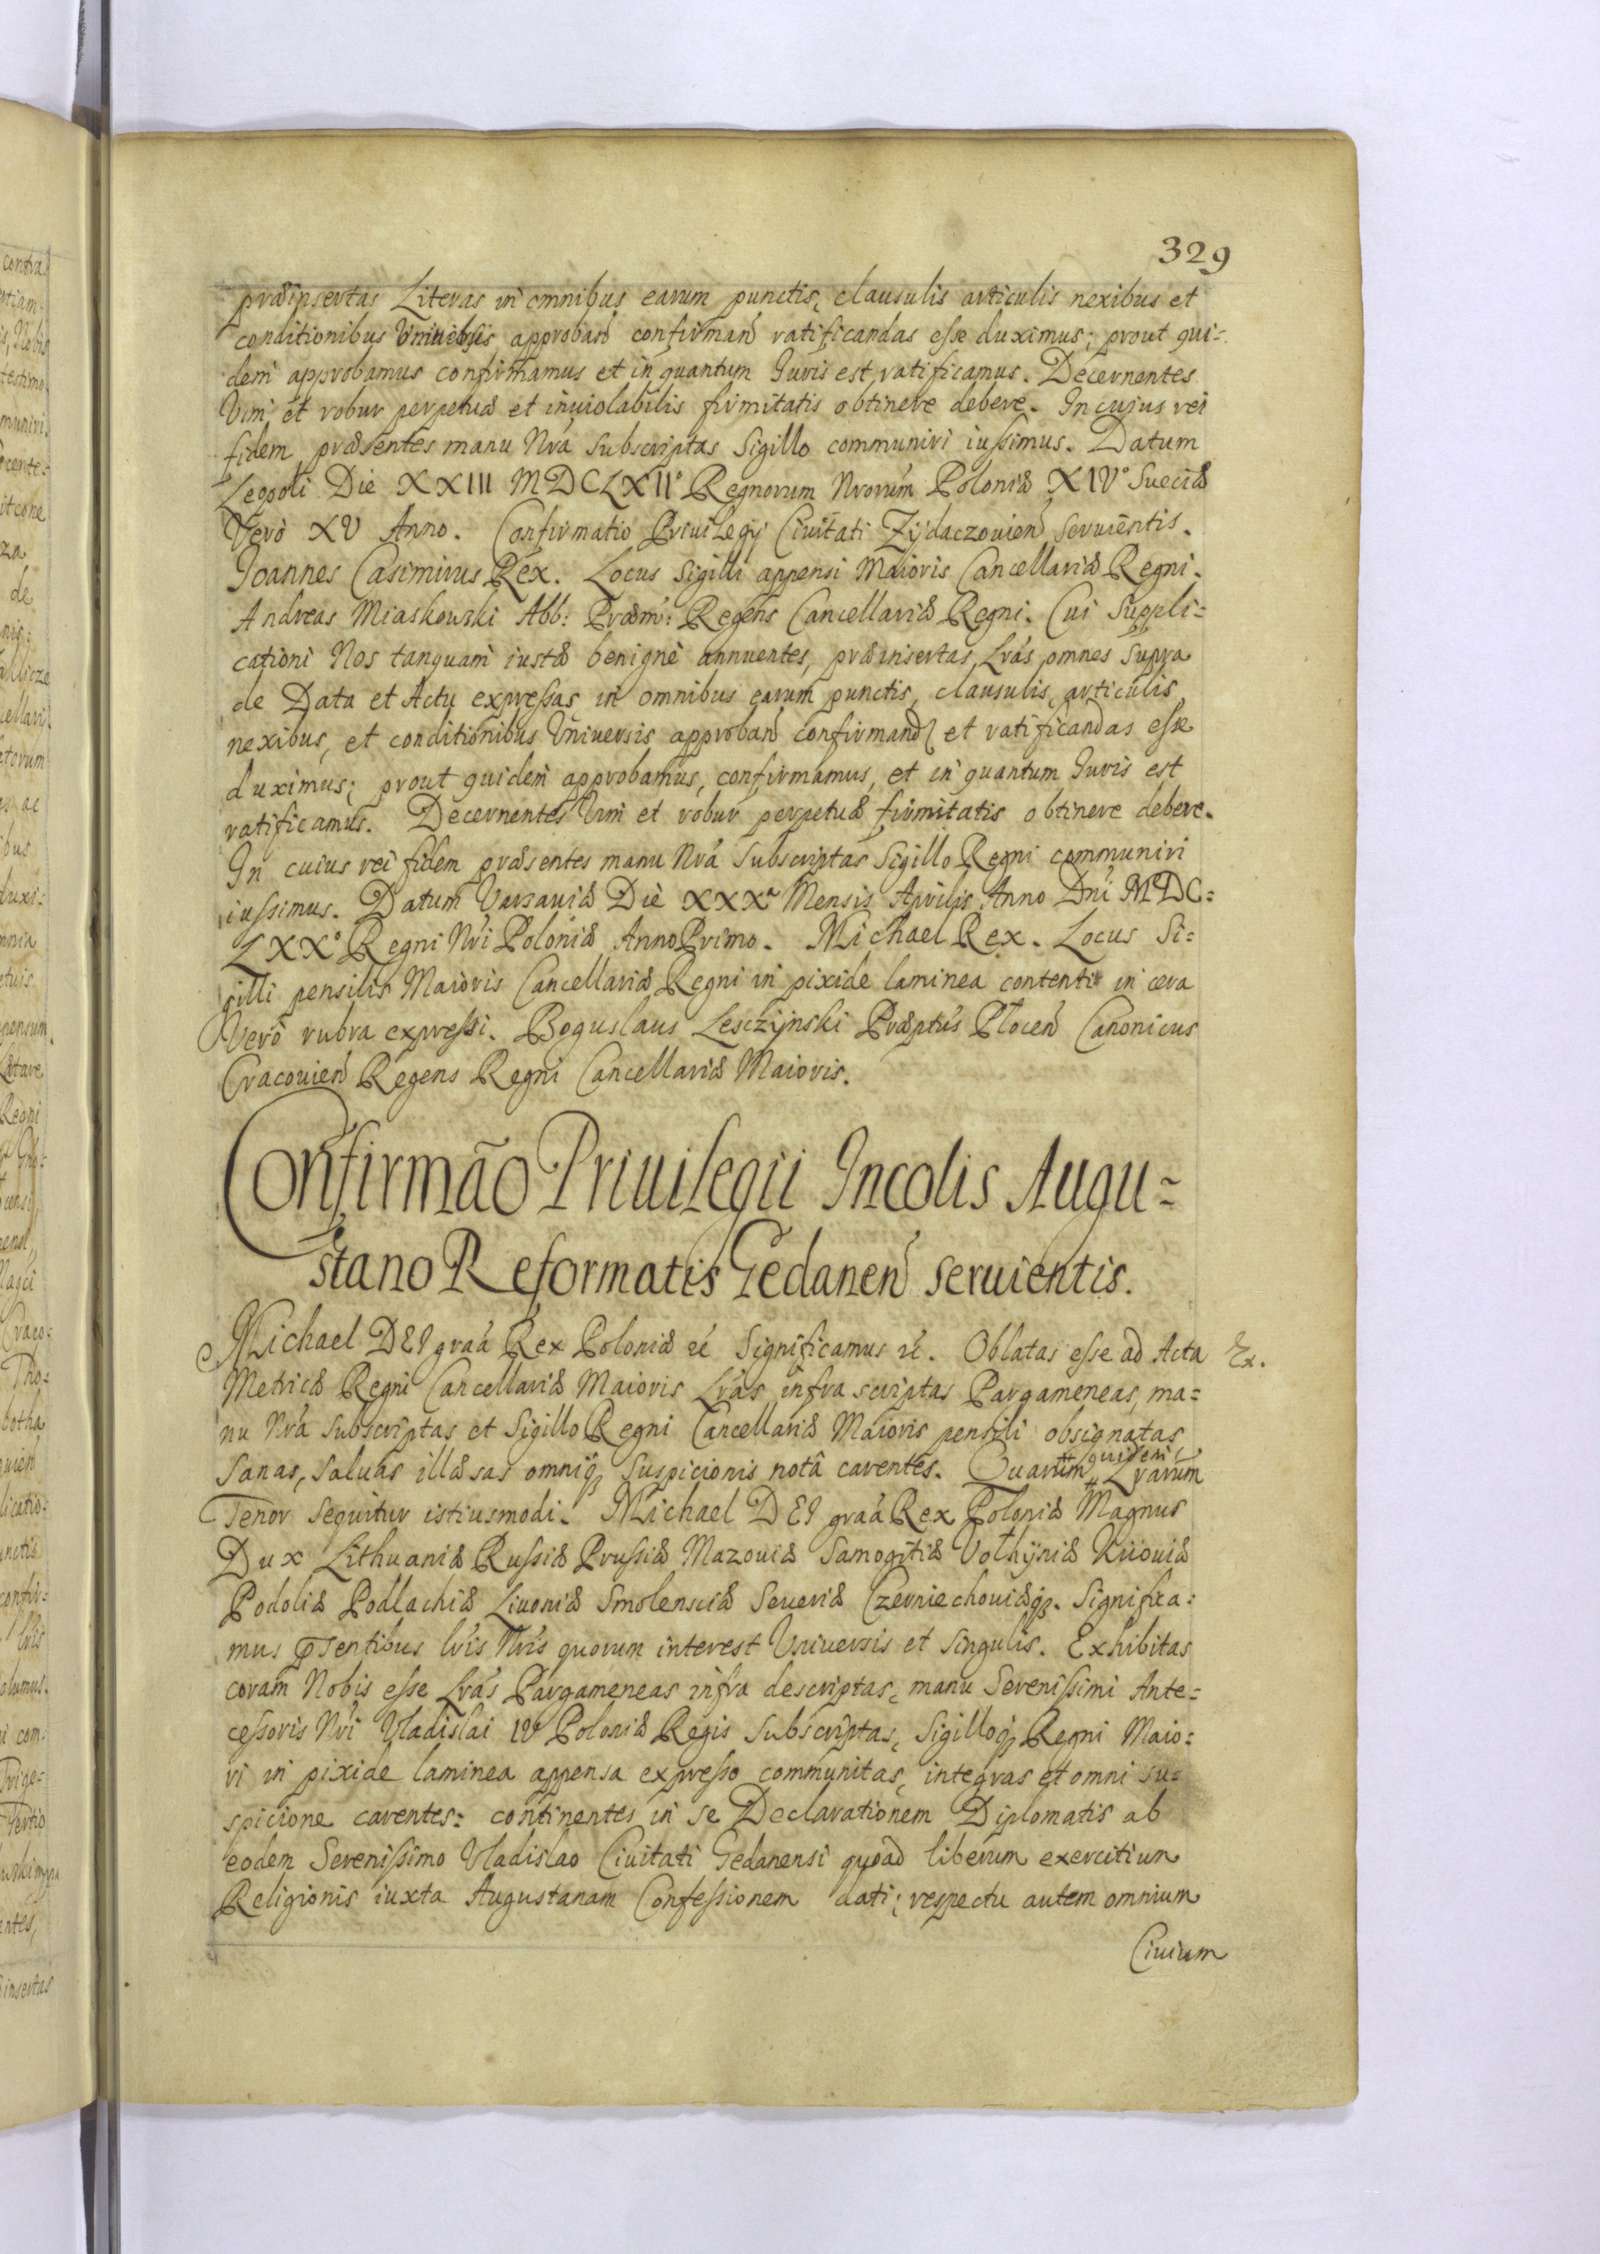 329
præinsertas Literas in omnibus earum punctis, clausulis articulis nexibus et
conditionibus Universis approband confirmand ratificandas esse duximus; prout qui-
dem approbamus confirmamus et in quantum Iuris est ratificamus. Decernentes
Vim et robur perpetuæ et inuiolabilis firmitatis obtinere debere. In cujus rei
fidem præsentes manu Nrá subscriptas Sigillo communiri iussimus. Datum
Leopoli Die XXIII MDCLXII° Regnorum Nrorum Poloniæ XIV° Sueciæ
Verò XV Anno. Confirmatio Priuilegij Ciuitati Zÿdaczouien seruientis.
Joannes Casimirus Rex. Locus Sigilli appensi Maioris Cancellariæ Regni.
Andreas Miaskowski Abb: Præm: Regens Cancellariæ Regni. Cui Suppli-
cationi Nos tanquam iustæ benignè annuentes, præinsertas Lrás omnes supra
de Data et Actu expressas in omnibus earum punctis, clausulis, articulis
nexibus, et conditionibus Universis approband confirmand et ratificandas esse
duximus; prout quidem approbamus, confirmamus, et in quantum Iuris est
ratificamus. Decernentes Vim et robur perpetuæ firmitatis obtinere debere.
In cuius rei fidem præsentes manu Nrá Subscriptas Sigillo Regni communiri
iussimus. Datum Varsauiæ Die XXXª Mensis Aprilis Anno Dni MDC-
LXX° Regni Nri Poloniæ Anno Primo. Michael Rex. Locus Si-
gilli pensilis Maioris Cancellariæ Regni in pixide laminea contenti in cera
Verò rubra expressi. Boguslaus Lesczÿnski Præptus Plocen Canonicus
Cracouien Regens Regni Cancellariæ Maioris.
Confirmão Priuilegii Incolis Augu-
stano Reformatis Gedanen seruientis.
Michael DEI graá Rex Poloniæ ré Significamus ré. Oblatas esse ad Acta Ex.
Metricæ Regni Cancellariæ Maioris Lrás infra scriptas Pargameneas, ma-
nu Nrá subscriptas et Sigillo Regni Cancellariæ Maioris pensili obsignatas
Sanas, saluas illæsas omniq; suspicionis notâ carentes. Quarum quidem Lrarum
Tenor sequitur istiusmodi. Michael DEI graá Rex Poloniæ Magnus
Dux Lithuaniæ Russiæ Prussiæ Mazouiæ Samogitiæ Volhÿniæ Kiiouiæ
Podoliæ Podlachiæ Liuoniæ Smolensciæ Seueriæ Czerniechouiæq;. Significa-
mus pńsentibus lrís Nrís quorum interest Universis et singulis. Exhibitas
coram Nobis esse Lrás Pargameneas infra descriptas, manu Serenissimi Ante-
cessoris Nri Vladislai IV Poloniæ Regis subscriptas, Sigilloq; Regni Maio-
ri in pixide laminea appensa expresso communitas, integras et omni su-
spicione carentes: continentes in se Declarationem Diplomatis ab
eodem Serenissimo Vladislao Ciuitati Gedanensi quoad liberum exercitium
Religionis iuxta Augustanam Confessionem dati; respectu autem omnium
Ciuium